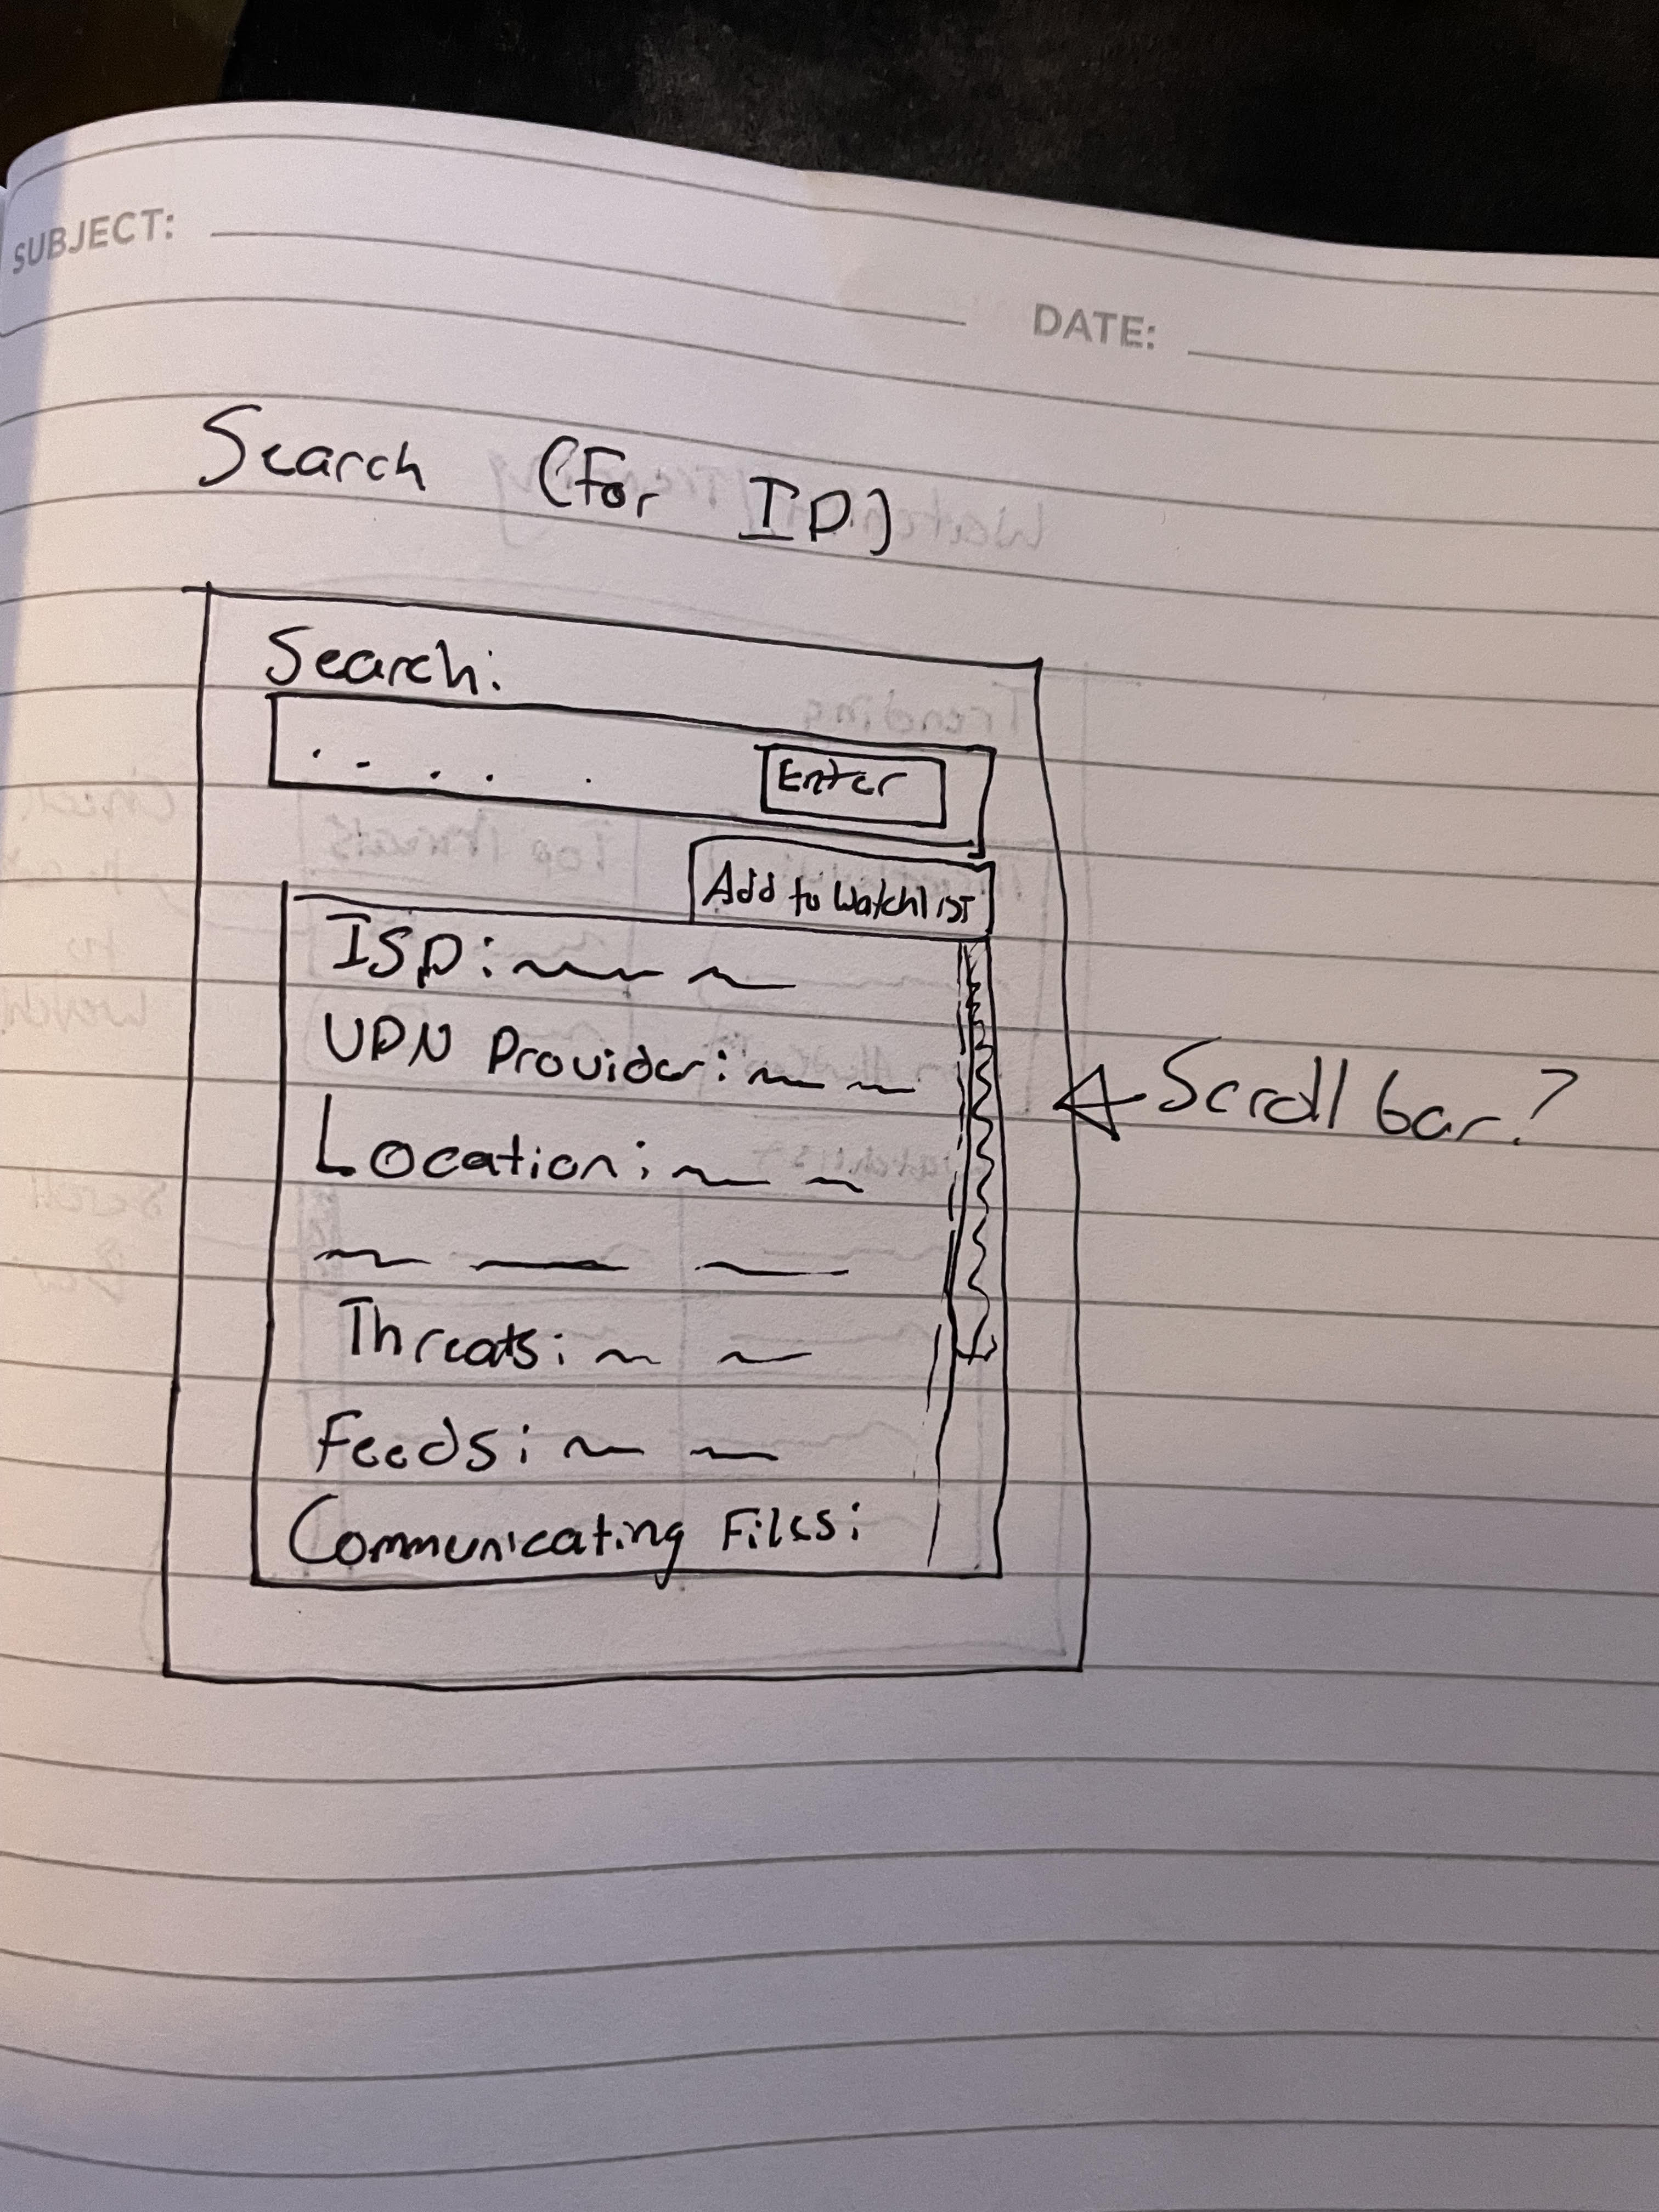 SUBJECT:
DATE:
Search (For IP)
Search:
Enter
Add to Watchlist
ISP:
VPN Provider:
Location:
Scroll bar?
Threats:
Feeds:
Communicating Files: